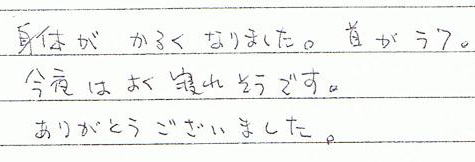 身体が かるくなりました。首がラク。
今夜はよく寝れそうです。
ありがとうございました。